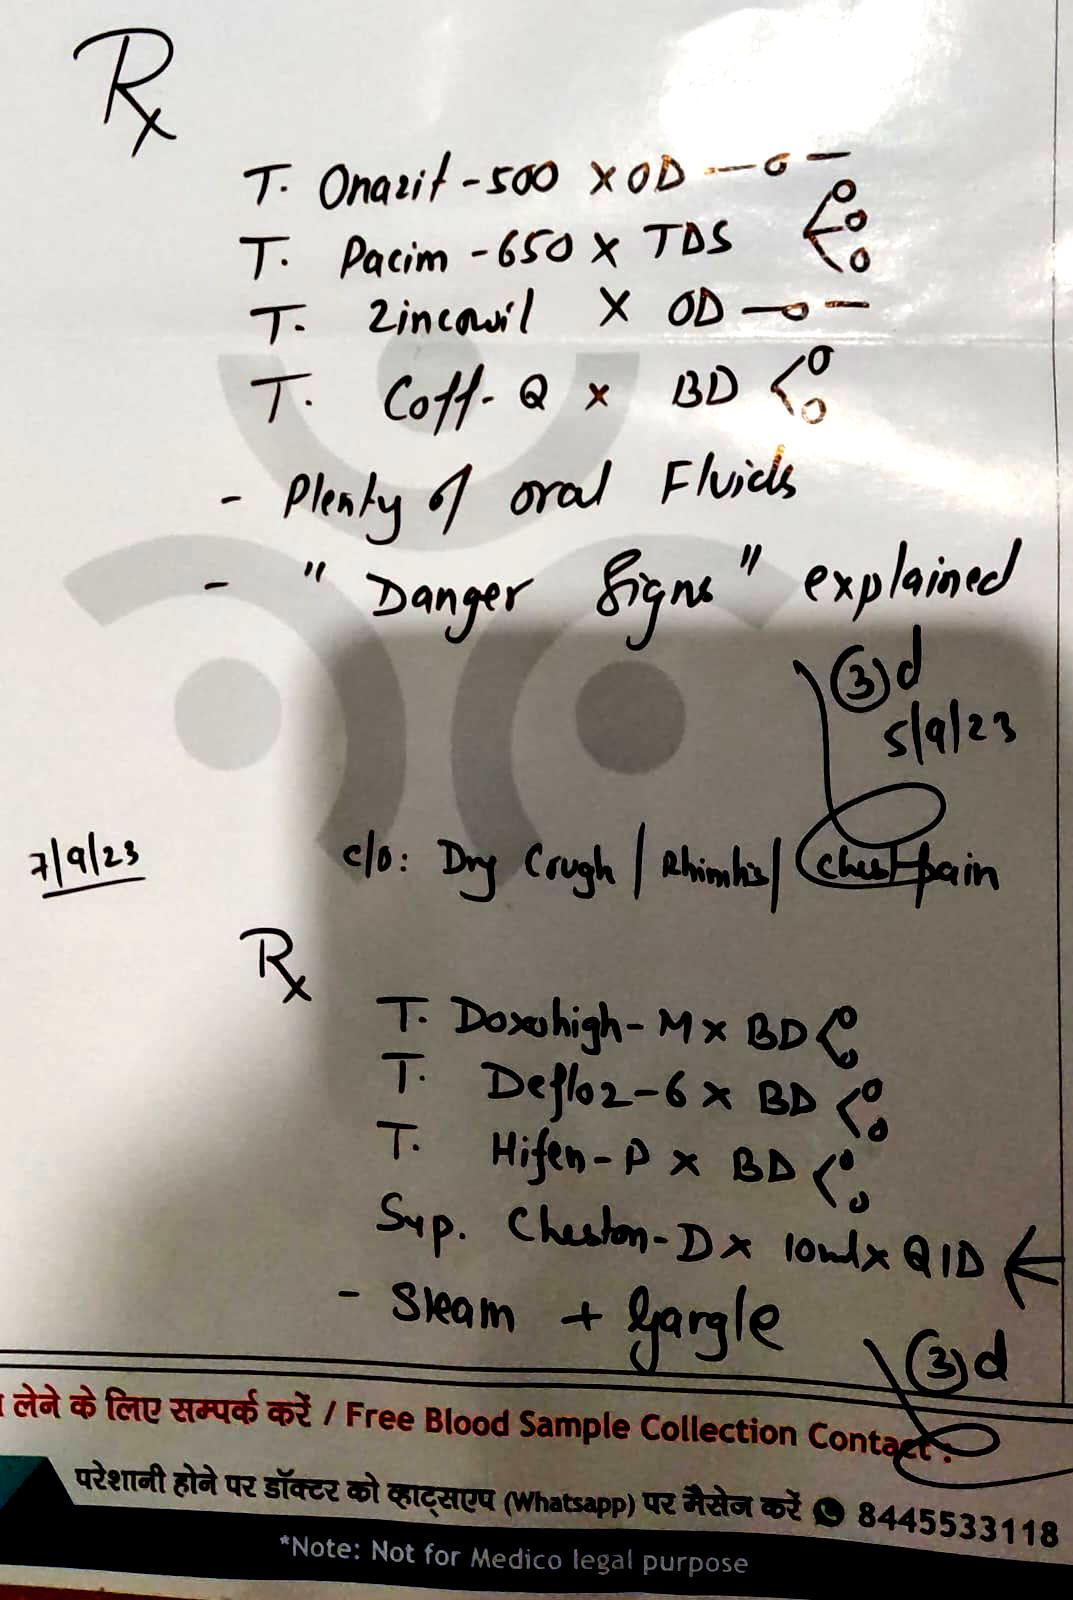 Rx
T. Onazit -500 x OD —o—
T. Pacim -650 x TDS
T. Zincowil x OD —o—
T. Coff-Q x BD
- Plenty of oral Fluids
- "Danger Signs" explained
③d
5/9/23
7/9/23 c/o: Dry Cough / Rhinitis / Chest pain
Rx
T. Doxohigh-M x BD
T. Defloz-6 x BD
T. Hifen-P x BD
Syp. Cheston-D x 10ml x QID
- Steam + Gargle
③d
लेने के लिए सम्पर्क करें / Free Blood Sample Collection Contact :
परेशानी होने पर डॉक्टर को व्हाट्सएप (Whatsapp) पर मैसेज करें 8445533118
*Note: Not for Medico legal purpose